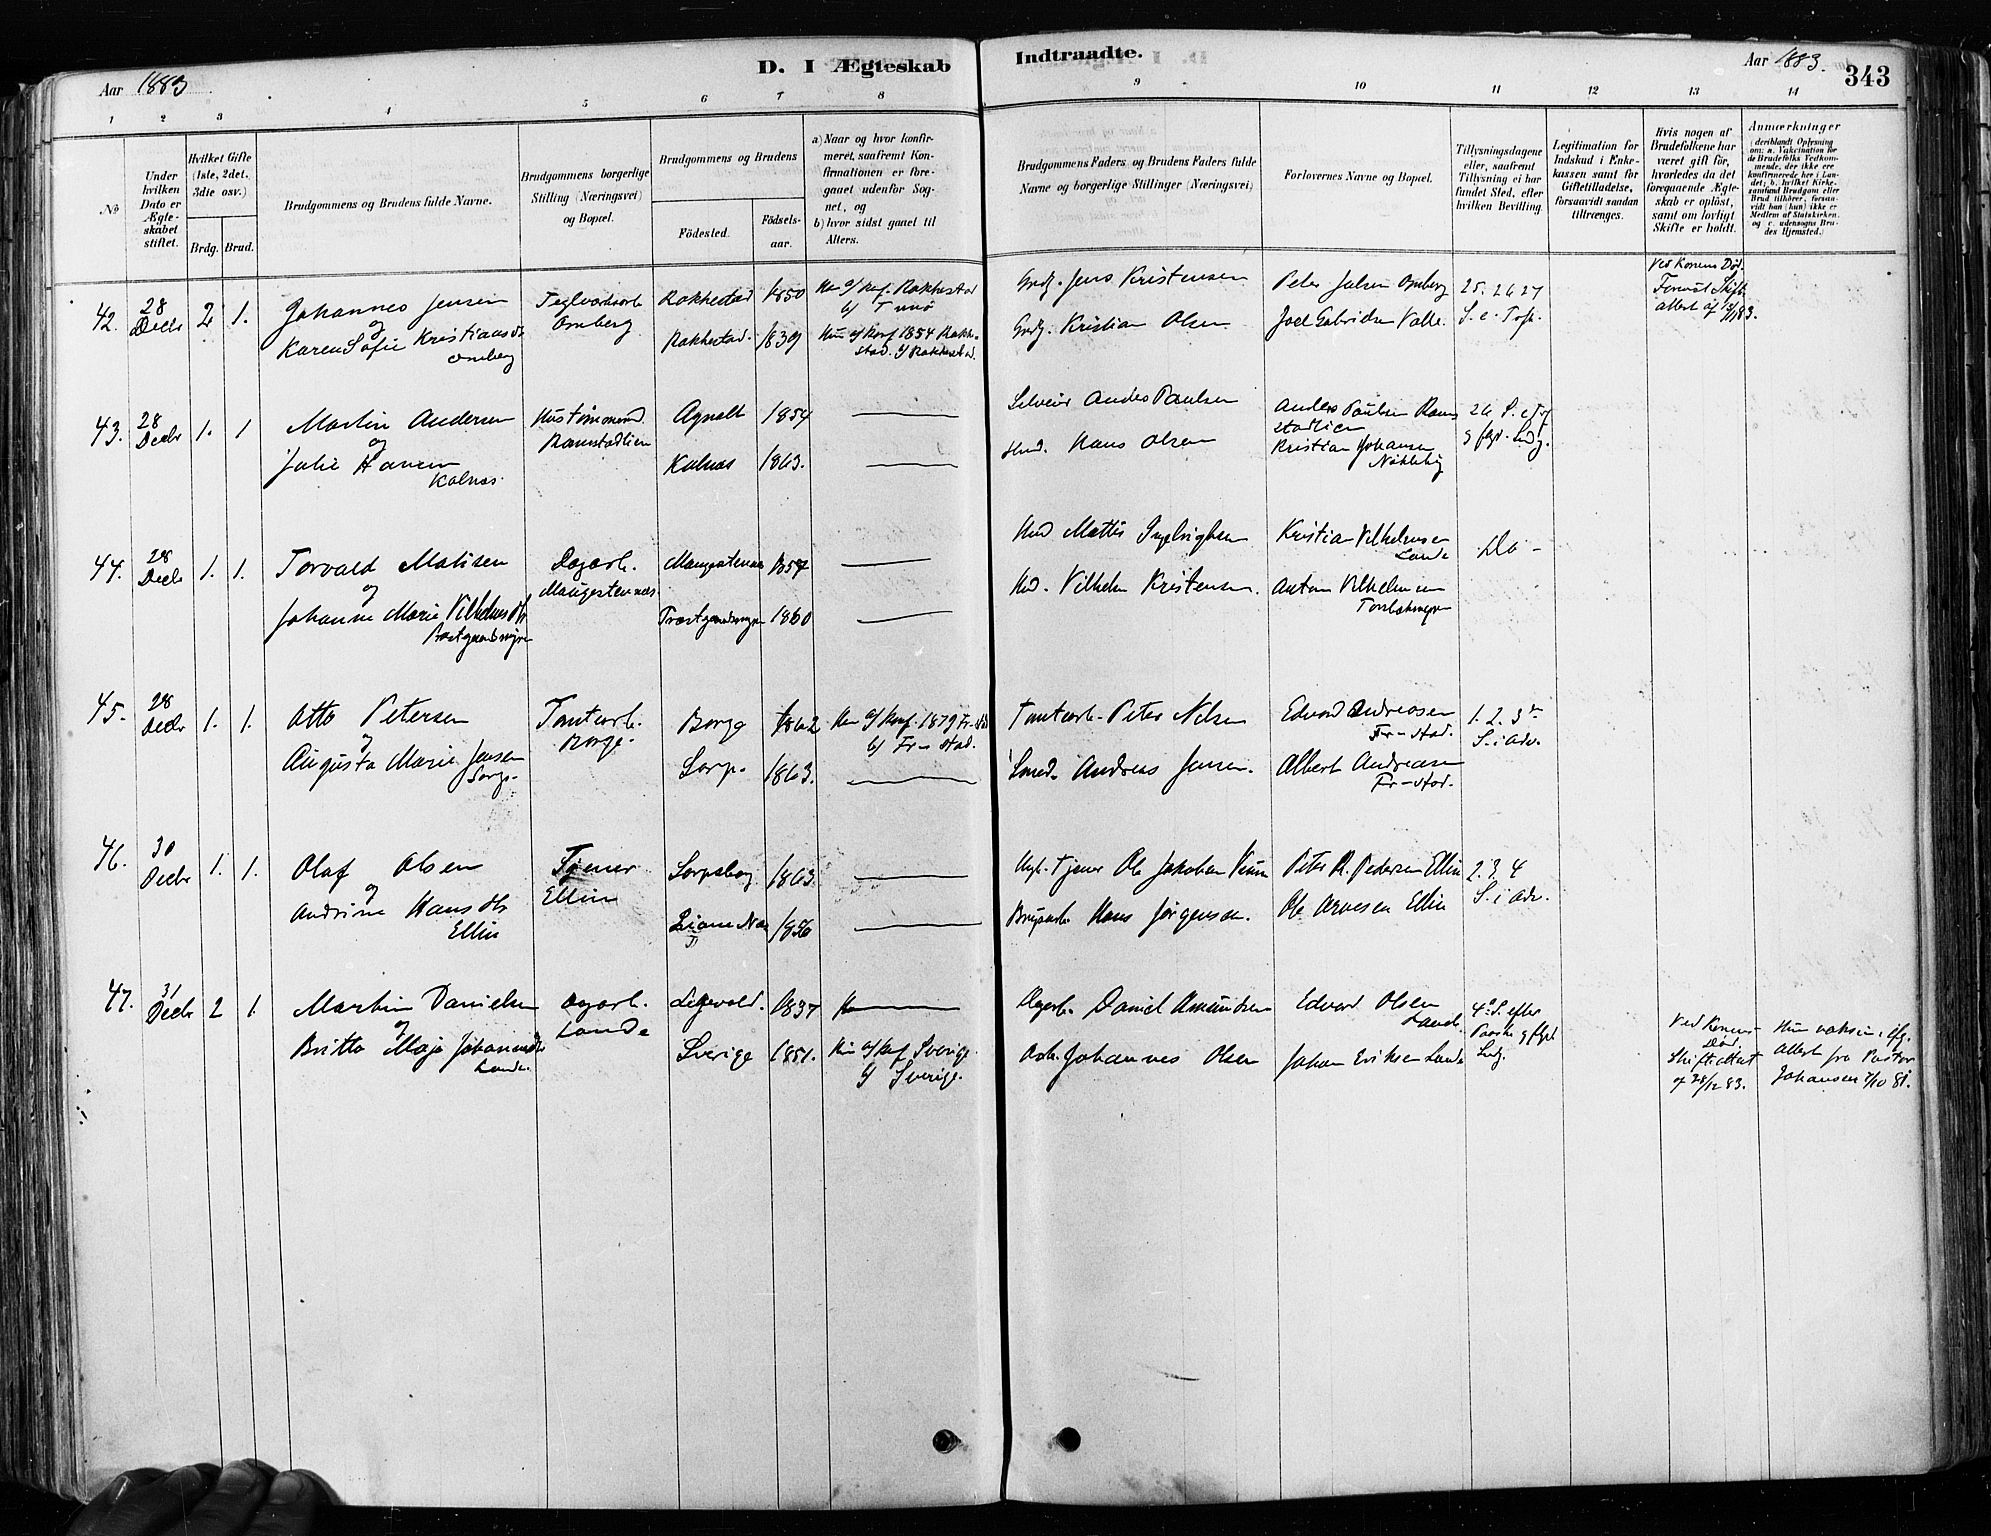 Aar 1883
D. I Ægteskab
Indtraadte.
Aar 1883.
343
1 2 3 4 5 6 7 8 9 10 11 12 13 14
No
Under hvilken Dato er Ægteskabet stiftet.
Hvilket Gifte (1ste, 2det, 3die osv.)
Brdg. Brud.
Brudgommens og Brudens fulde Navne.
Brudgommens borgerlige Stilling (Næringsvei) og Bopæl.
Brudgommens og Brudens
Fødested. Fødselsaar.
a) Naar og hvor konfirmeret, saafremt Konfirmationen er foregaaet udenfor Sognet, og
b) hvor sidst gaaet til Alters.
Brudgommens Faders og Brudens Faders fulde Navne og borgerlige Stillinger (Næringsvei)
Forlovernes Navne og Bopæl.
Tillysningsdagene eller, saafremt Tillysning ei har fundet Sted, efter hvilken Bevilling.
Legitimation for Indskud i Enkekassen samt for Giftetilladelse, forsaavidt saadan tiltrænges.
Hvis nogen af Brudefolkene har været gift før, hvorledes da det foregaaende Ægteskab er opløst, samt om lovligt Skifte er holdt.
Anmærkninger
(deriblandt Oplysning om: a. Vakcination for de Brudefolks Vedkommende, der ikke ere konfirmerede her i Landet; b. hvilket Kirkesamfund Brudgom eller Brud tilhører, forsaavidt han (hun) ikke er Medlem af Statskirken. og c. udensogns Brudes Hjemsted.)
42. 28 Decbr 2. 1.
Johannes Jensen
og
Karen Sofie Kristiansdt
Omberg
Omberg
Rakkestad 1850
Rakkestad. 1839
Han a/ konf. Rakkestad
b/ Tunø
Hun a/ konf 1854 Rakkestad. b/ Rakkestad.
Grdg. Jens Kristensen
Grdg. Kristian Olsen
Omberg
Joel Gabrielsen Valle.
25. 26 27
S. e. Tref.
Ved Konens Død.
43. 28 Decbr 1. 1
Martin Andersen
og
Julie Hansen
Kalnes.
Ramstadlien
Agnalt 1854
Kalnes 1863.
Selveier Anders Paulsen
Hmd. Hans Olsen
Anders Paulsen Ramstadlien
Kristian Johansen
Nökleby
44. 28 Decbr 1. 1.
Torvald Matisen
og
Johanne Marie Vilhelmsdtr
Dagarb.
1857
1860
Hmd Mattis
Hmd. Vilhelm Kristensen.
Kristian Vilhelmsen
Lande
Anton Vilhelmsen
Do -
45. 28 Decbr 1. 1.
Otto Petersen
og
Augusta Marie Jensen
Sarp.
Tomtearb.
Borge.
Borge 1862
Sarp. 1863.
Han a/ konf. 1879 Fr-stad
b/ Fr-stad.
Tomtearb. Peter Nilsen
Smed. Andreas Jensen.
Edvard Andreasen
Fr-stad.
Albert Andreasen
Fr-stad.
1. 2. 3die
S. i Adv.
46. 30 Decbr 1. 1.
Olaf Olsen
og
Andrine Hansdtr
Ellin
Ellin
Sarpsborg 1863.
1856
Ole Jakobsen
Hans Jørgensen.
Peter R. Pedersen Ellin
Ole Arvesen Ellin
2. 3. 4
S. i Adv.
47. 31 Decbr 2 1.
Martin Danielsen
og
Britta Maja Johannesdtr
Lande.
Dagarb.
Lande
1837
Sverige 1851.
Hun a/ konf. Sverige
b/ Sverige.
Dagarb. Daniel Amundsen
Johannes Olsen
Edvard Olsen
Lande.
Johan Eriksen Lande
4de S. efter
Paaske
Ved Konens Død.
Skifteattest
af 28/12 83.
Hun
Attest fra Pastor
Johansen 7/10 81.